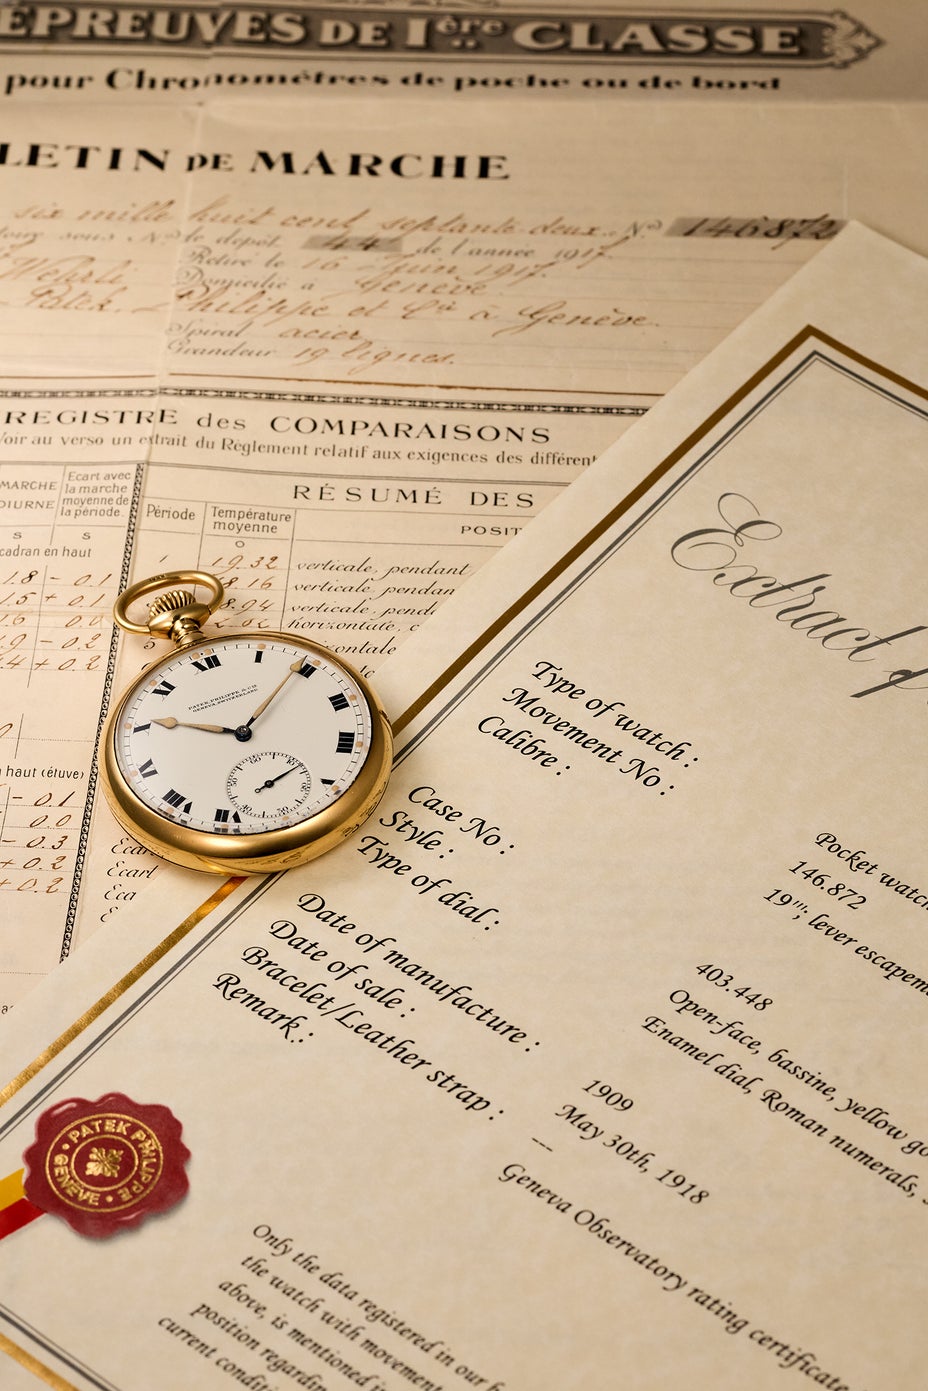 ÉPREUVES DE Ière CLASSE
pour Chronomètres de poche ou de bord
LETIN DE MARCHE
six mille huit cent septante deux. No 146872
sous No de dépôt 44 de l'année 1917.
Retiré le 16 Juin 1917.
Wehrli Domicilié à Genève
Patek, Philippe et Cie à Genève.
Spiral acier
Grandeur 19 lignes.
REGISTRE des COMPARAISONS
Voir au verso un extrait du Règlement relatif aux exigences des différent
MARCHE
DIURNE
Ecart avec
la marche
moyenne de
la période.
s s
cadran en haut
1.8 - 0.1
1.5 + 0.1
1.6 0.0
.9 - 0.2
.4 + 0.2
0
haut (étuve)
- 0.1
0.0
- 0.3
+ 0.2
+ 0.2
RÉSUMÉ DES
POSIT
Période
Température
moyenne
o
1 19.32 verticale, pendant
8.16 verticale, pendan
8.94 verticale, penda
horizontale, c
5 horizontale
Ecart
Ecart
Eca
PATEK, PHILIPPE & CIE
GENÈVE, SWITZERLAND
Extract
Type of watch :
Movement No :
Calibre :
Case No :
Style :
Type of dial :
Date of manufacture :
Date of sale :
Bracelet/Leather strap :
Remark :
Pocket watch
146.872
19'''; lever escapeme
403.448
Open-face, bassine, yellow go
Enamel dial, Roman numerals,
1909
May 30th, 1918
---
Geneva Observatory rating certificate
Only the data registered in our
the watch with movement
above, is mentioned i
position regardin
current condit
PATEK PHILIPPE
GENÈVE